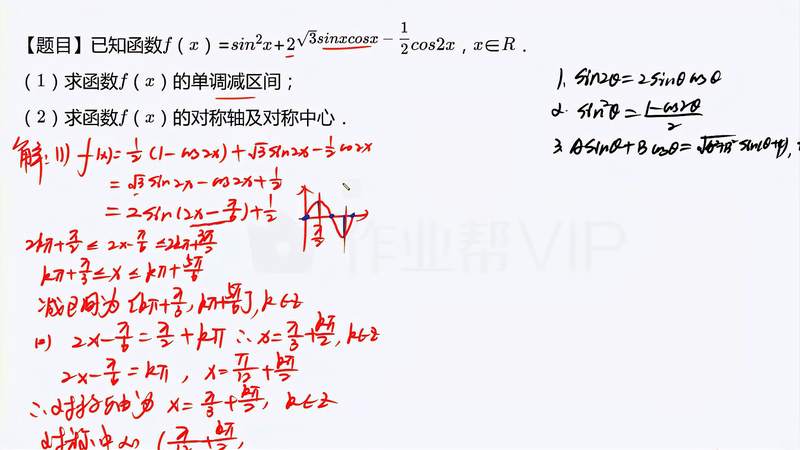 【题目】已知函数f(x)=sin²x+2^{√3sinxcosx}-1/2cos2x，x∈R．
(1)求函数f(x)的单调减区间；
(2)求函数f(x)的对称轴及对称中心．
1. sin2θ=2sinθcosθ
2. sin²θ=(1-cos2θ)/2
3. Asinθ+Bcosθ=√(A²+B²) sin(θ+φ),
解:(1) f(x)=1/2(1-cos2x)+√3sin2x-1/2cos2x
=√3sin2x-cos2x+1/2
=2sin(2x-π/6)+1/2
π/2
2kπ+π/2≤2x-π/6≤2kπ+3π/2
kπ+π/3≤x≤kπ+5π/6
减区间为[kπ+π/3,kπ+5π/6],k∈Z
(2) 2x-π/6=π/2+kπ ∴x=π/3+kπ/2,k∈Z
2x-π/6=kπ, x=π/12+kπ/2
∴对称轴为 x=π/3+kπ/2, k∈Z
对称中心(π/12+kπ/2,
作业帮VIP